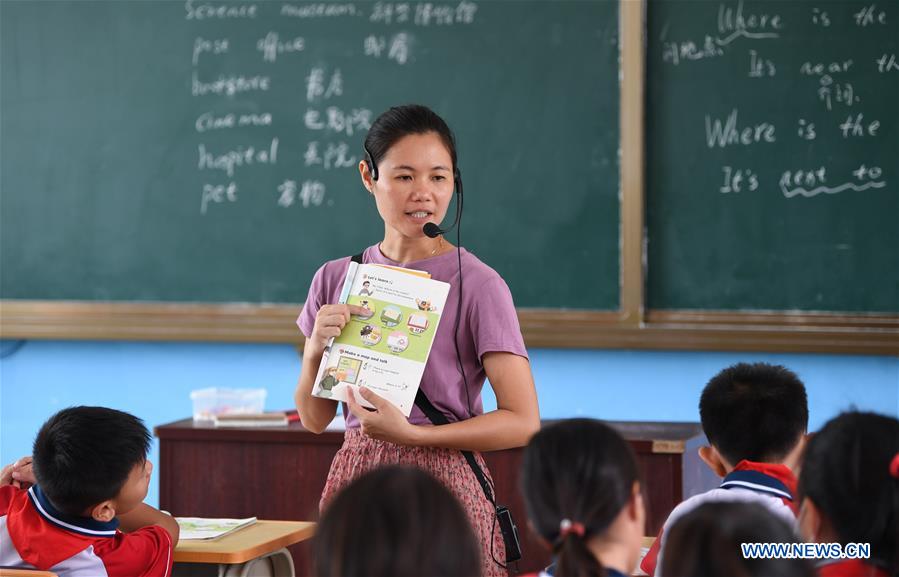 Science museum. 科学博物馆
post office 邮局
bookstore 书店
cinema 电影院
hospital 医院
pet 宠物
Where is the
问地点
It's near the
介词
Where is the
It's next to
Let's learn
Make a map and talk
WWW.NEWS.CN